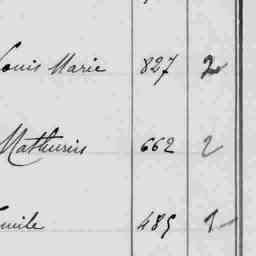 Louis Marie 827 2
Mathurin 662 2
Emile 485 1